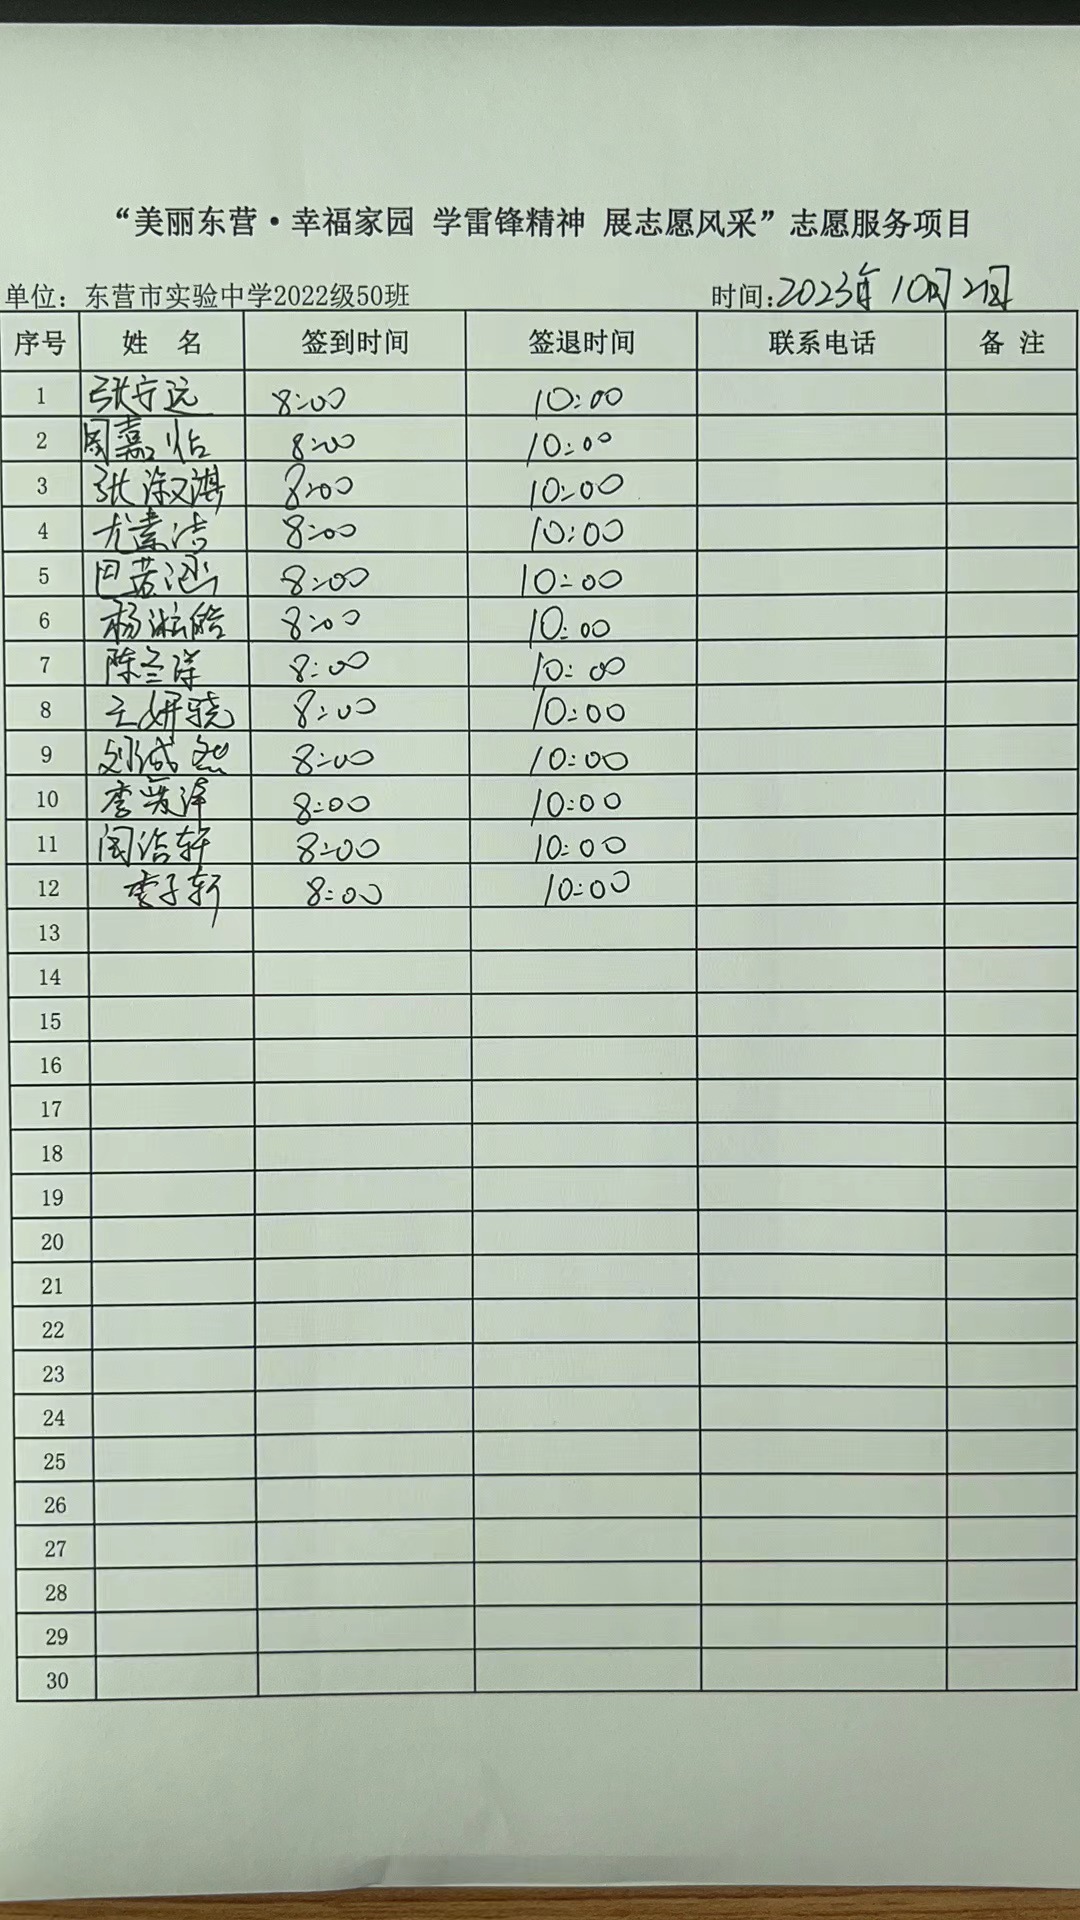 “美丽东营·幸福家园 学雷锋精神 展志愿风采”志愿服务项目
单位：东营市实验中学2022级50班 时间：2023年10月21日
序号 姓名 签到时间 签退时间 联系电话 备注
1 张守远 8:00 10:00
2 周嘉怡 8:00 10:00
3 张淑淇 8:00 10:00
4 尤素洁 8:00 10:00
5 巴若涵 8:00 10:00
6 杨淞皓 8:00 10:00
7 陈兰洋 8:00 10:00
8 王妍骁 8:00 10:00
9 刘成 8:00 10:00
10 李 泽 8:00 10:00
11 闫浩轩 8:00 10:00
12 李子轩 8:00 10:00
13
14
15
16
17
18
19
20
21
22
23
24
25
26
27
28
29
30